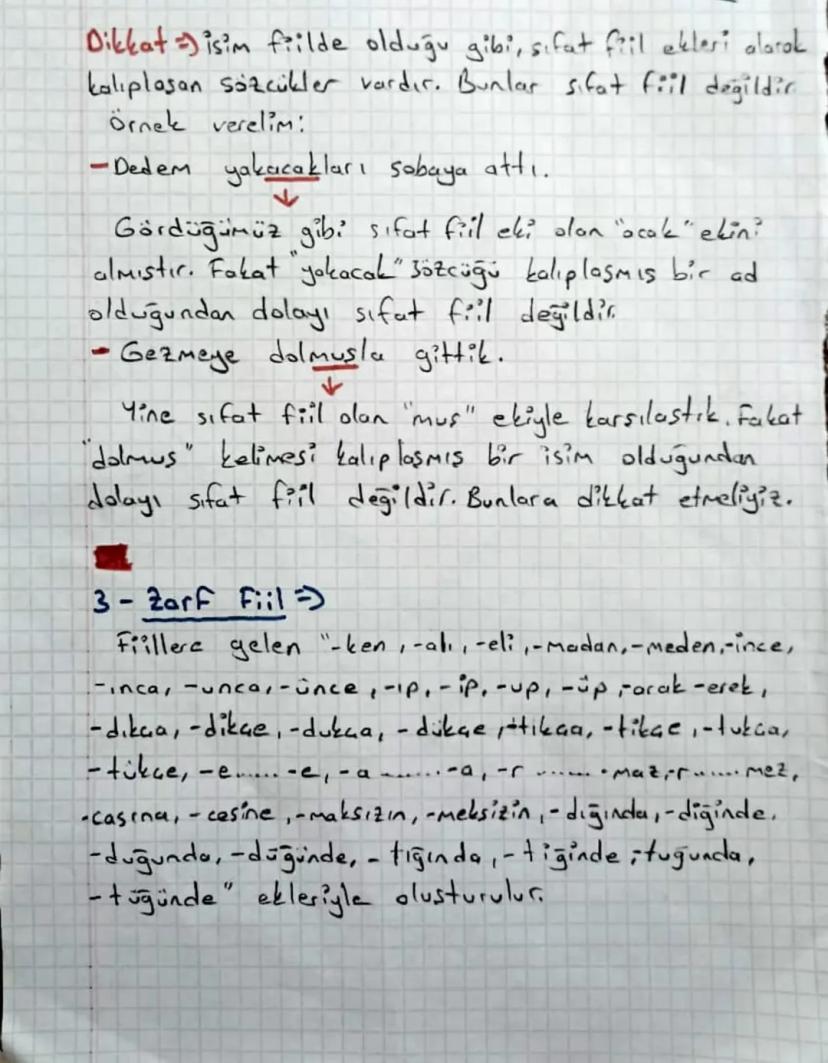 Dikkat => isim fiilde olduğu gibi, sıfat fiil ekleri alarak
kalıplaşan sözcükler vardır. Bunlar sıfat fiil değildir.
Örnek verelim:
- Dedem yakacakları sobaya attı.
Gördüğümüz gibi sıfat fiil eki olan "acak" ekini
almıştır. Fakat "yakacak" sözcüğü kalıplaşmış bir ad
olduğundan dolayı sıfat fiil değildir.
- Gezmeye dolmuşla gittik.
Yine sıfat fiil olan "muş" ekiyle karşılaştık. Fakat
"dolmuş" kelimesi kalıplaşmış bir isim olduğundan
dolayı sıfat fiil değildir. Bunlara dikkat etmeliyiz.
3 - Zarf Fiil =>
Fiillere gelen "-ken, -alı, -eli, -madan, -meden, -ince,
-ınca, -unca, -ünce, -ıp, -ip, -up, -üp, -arak -erek,
-dıkça, -dikçe, -dukça, -dükçe, -tıkça, -tikçe, -tukça,
-tükçe, -e......-e, -a.......-a, -r.......maz, -r......mez,
-casına, -cesine, -maksızın, -meksizin, -dığında, -diğinde,
-duğunda, -düğünde, -tığında, -tiğinde, -tuğunda,
-tüğünde" ekleriyle oluşturulur.